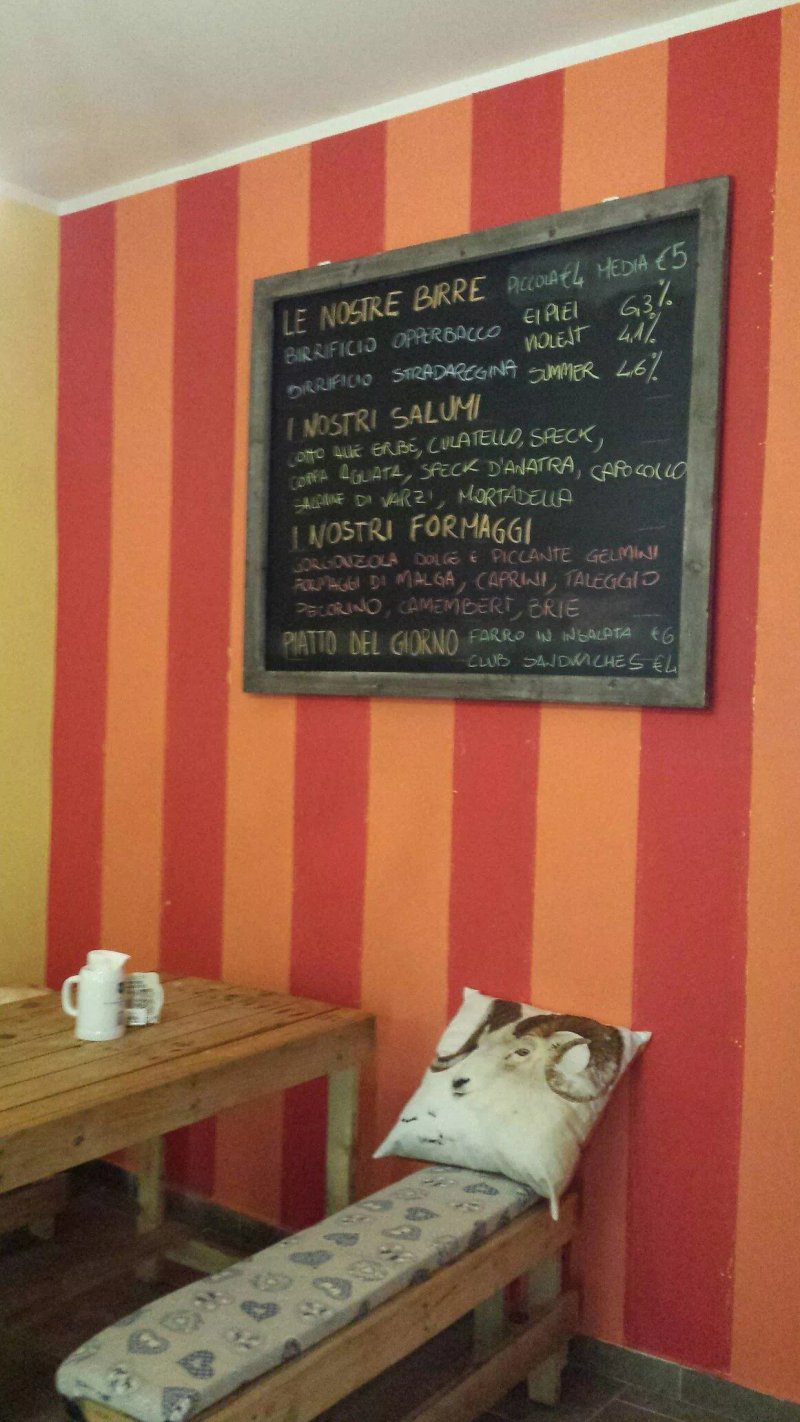 LE NOSTRE BIRRE PICCOLA €4 MEDIA €5
BIRRIFICIO OPPERBACCO EIPIEI 6,3%
VIOLENT 4,1%
BIRRIFICIO STRADAREGINA SUMMER 4,6%
I NOSTRI SALUMI
COTTO ALLE ERBE, CULATELLO, SPECK,
COPPA AGLIATA, SPECK D'ANATRA, CAPOCOLLO
SALAME DI VARZI, MORTADELLA
I NOSTRI FORMAGGI
GORGONZOLA DOLCE E PICCANTE GELMINI
FORMAGGI DI MALGA, CAPRINI, TALEGGIO
PECORINO, CAMEMBERT, BRIE
PIATTO DEL GIORNO FARRO IN INSALATA €6
CLUB SANDWICHES €4